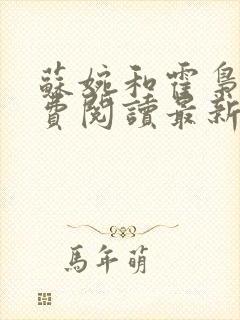 蘇婉和霍梟
費閱讀最新
馬年萌